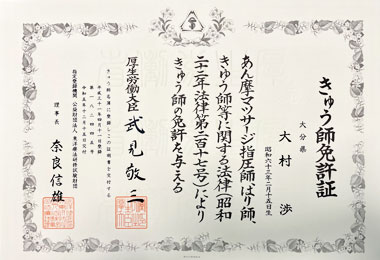 きゅう師免許証
大分県
大村 渉
昭和六十三年二月十五日生
あん摩マツサージ指圧師、はり師、
きゆう師等に関する法律(昭和
二十二年法律第二百十七号)により
きゅう師の免許を与える
厚生労働大臣 武見敬三
きゅう師名簿に登録しこの証明書を交付する
指定登録機関 公益財団法人 東洋療法研修試験財団
理事長 奈良信雄